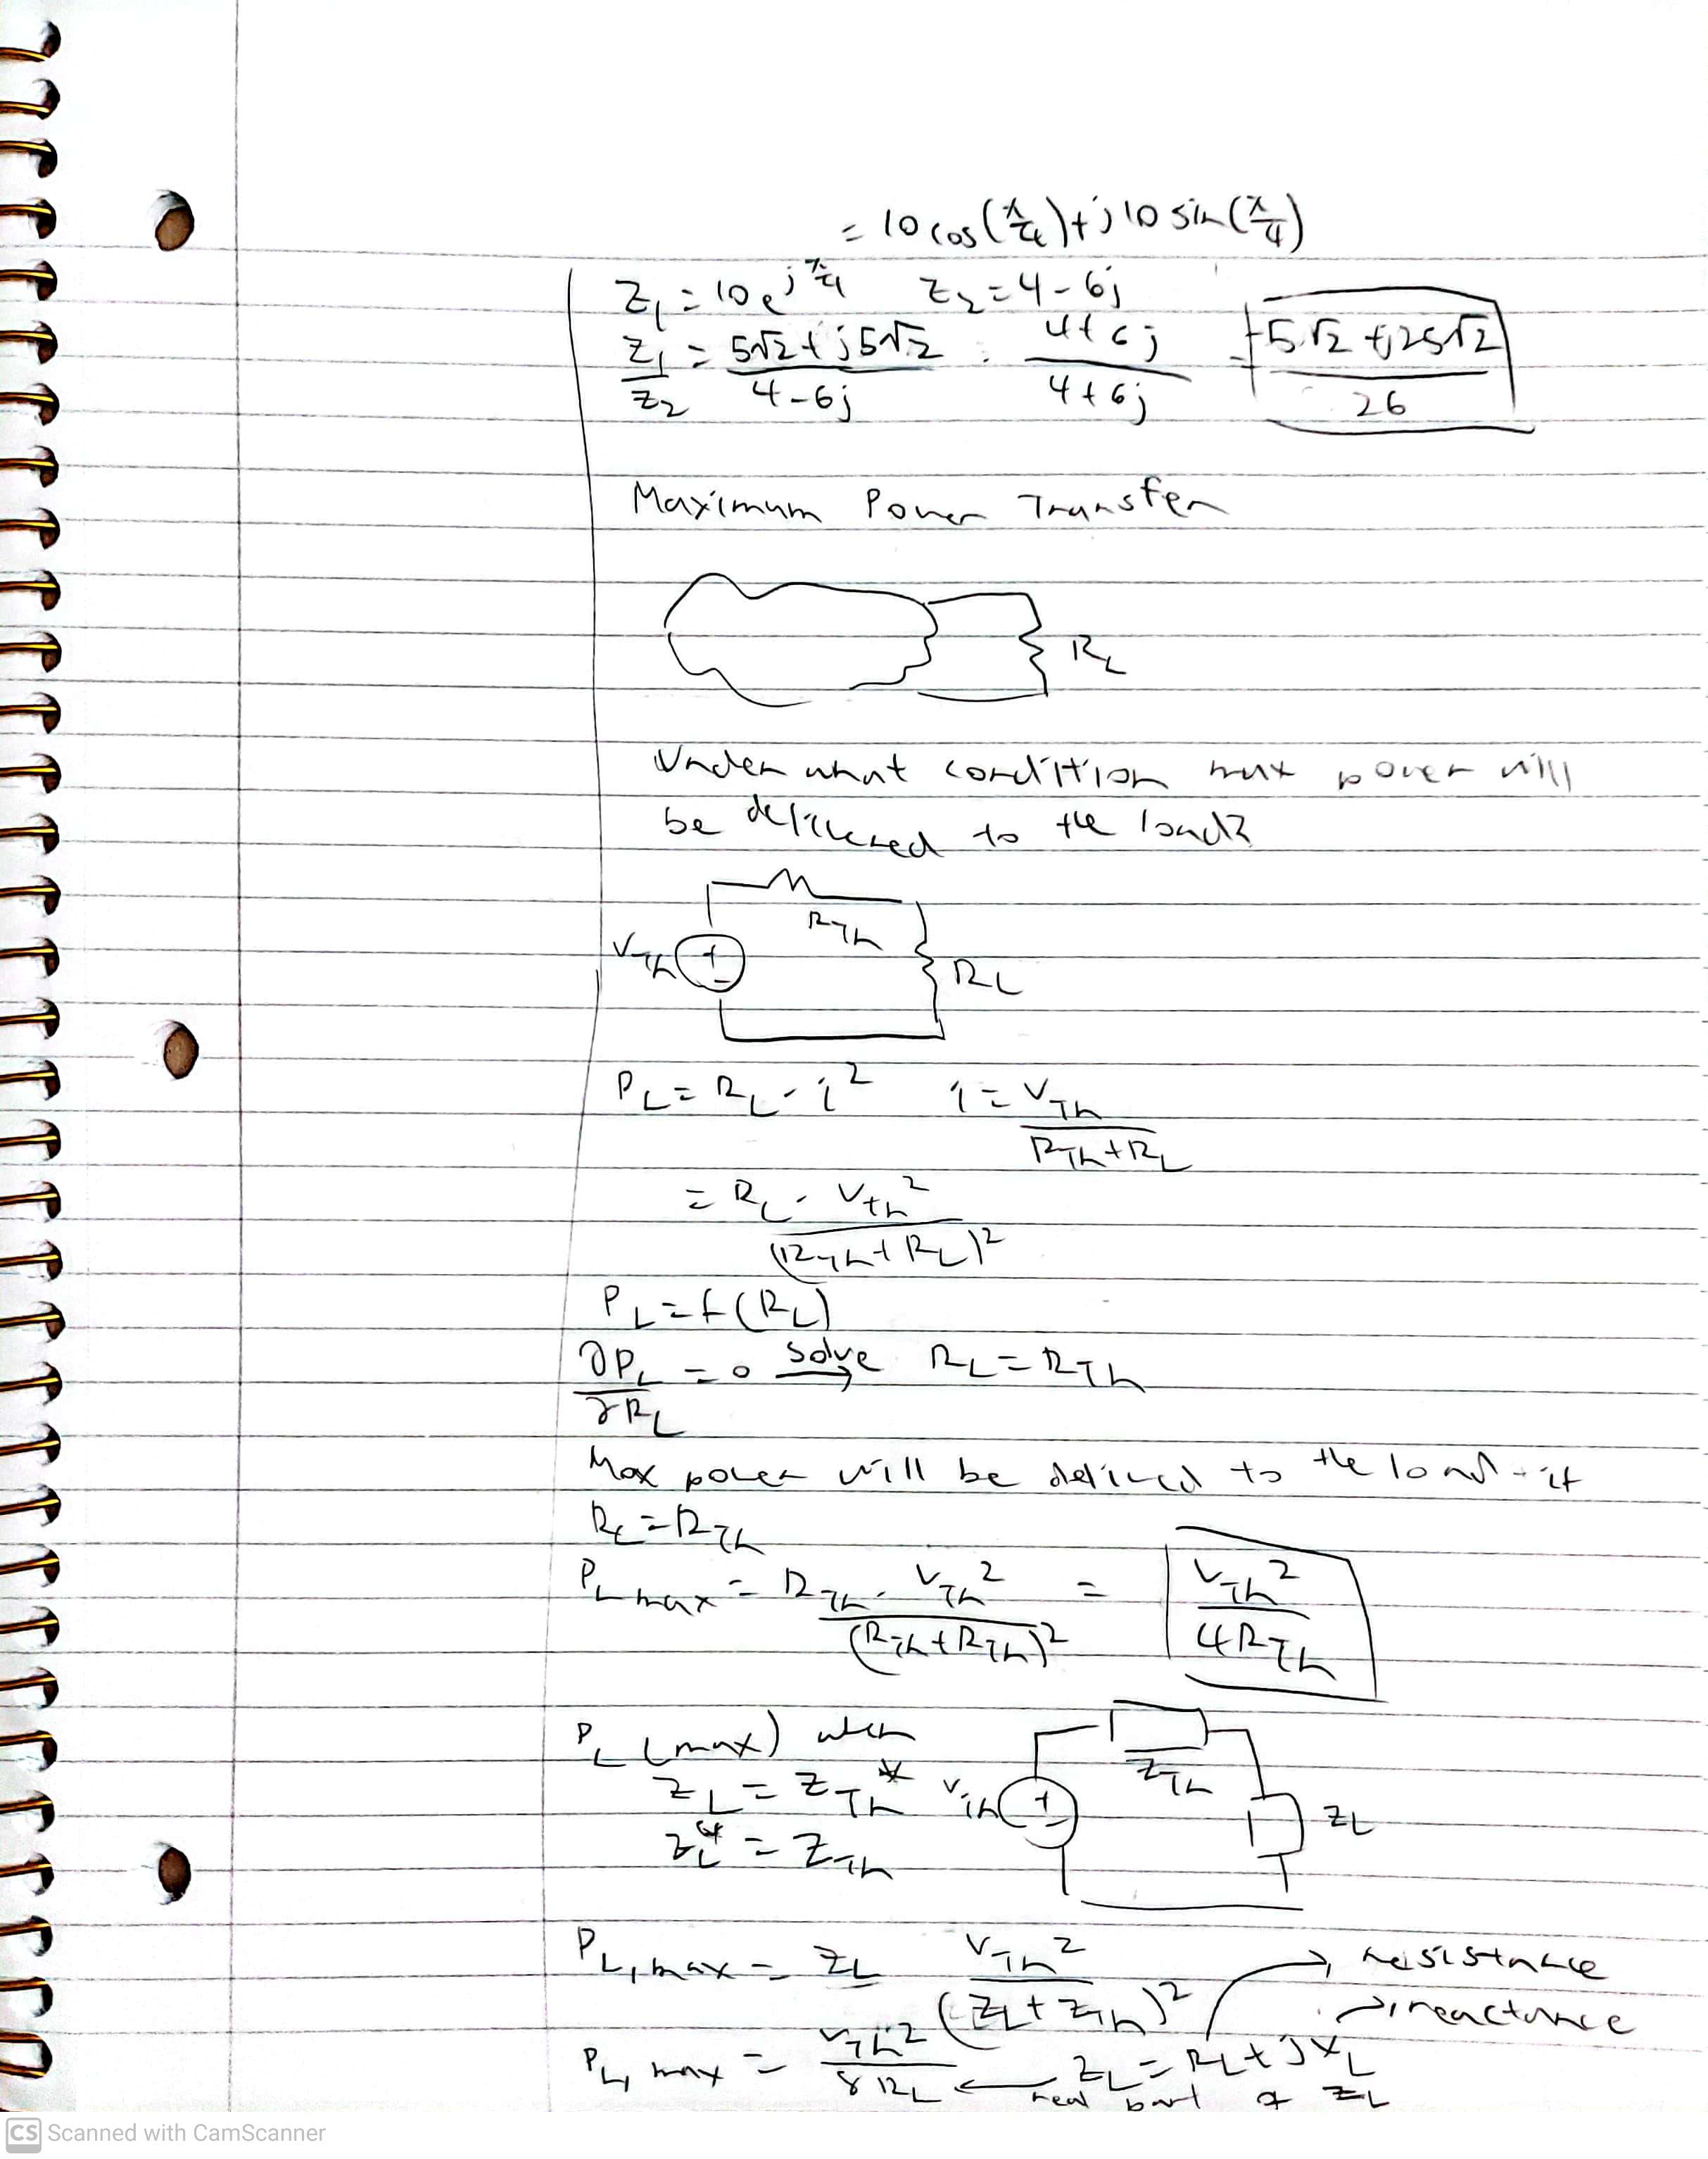 = 10 cos(π/4) + j 10 sin(π/4)
Z₁ = 10 e^(j π/4)   Z₂ = 4 - 6j
Z₁/Z₂ = (5√2 + j5√2)/(4 - 6j) · (4 + 6j)/(4 + 6j) = (-5√2 + j25√2)/26
Maximum Power Transfer
R_L
Under what condition max power will
be delivered to the load?
R_Th
V_Th + - R_L
P_L = R_L · i²   i = V_Th/(R_Th + R_L)
= R_L · V_th²/(R_Th + R_L)²
P_L = f(R_L)
∂P_L/∂R_L = 0 solve→ R_L = R_Th
Max power will be delived to the load if
R_L = R_Th
P_L max = R_Th · V_Th²/(R_Th + R_Th)² = V_Th²/(4R_Th)
P_L (max) when
Z_Th
Z_L = Z_Th*   V_Th + - Z_L
Z_L* = Z_Th
P_L, max = Z_L V_Th²/(Z_L + Z_Th)² → resistance
→ reactance
P_L, max = V_Th²/(8 R_L) ← Z_L = R_L + jX_L
real part of Z_L
CS Scanned with CamScanner